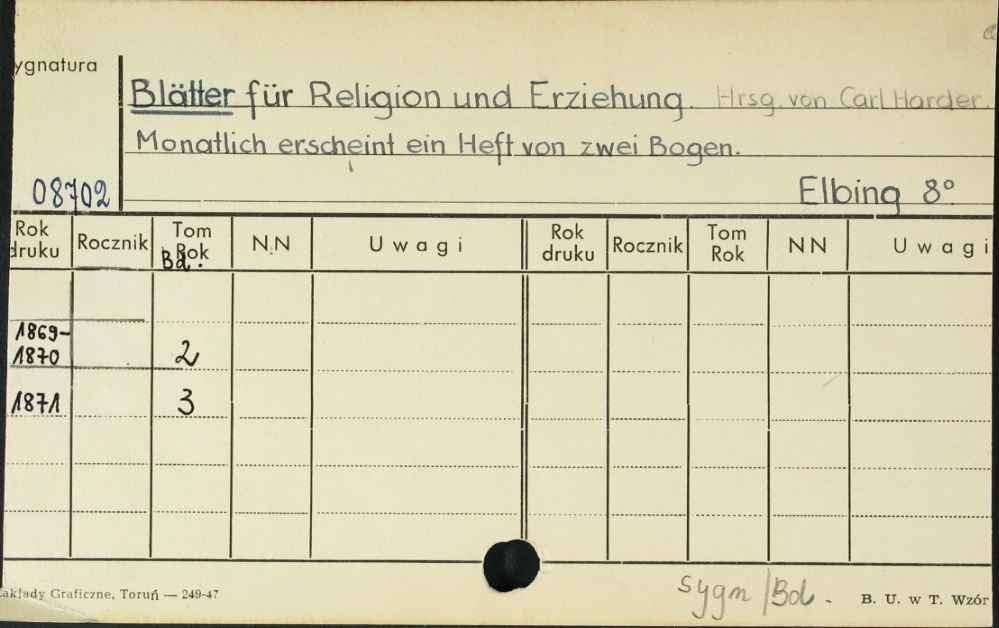 ygnatura
Blätter für Religion und Erziehung. Hrsg. von Carl Harder.
Monatlich erscheint ein Heft von zwei Bogen.
08702
Elbing 8°
Rok druku Rocznik Tom Rok Bd. N.N Uwagi Rok druku Rocznik Tom Rok NN Uwagi
1869-
1870 2
1871 3
akłady Graficzne, Toruń — 249-47
sygn/Bd.
B. U. w T. Wzór